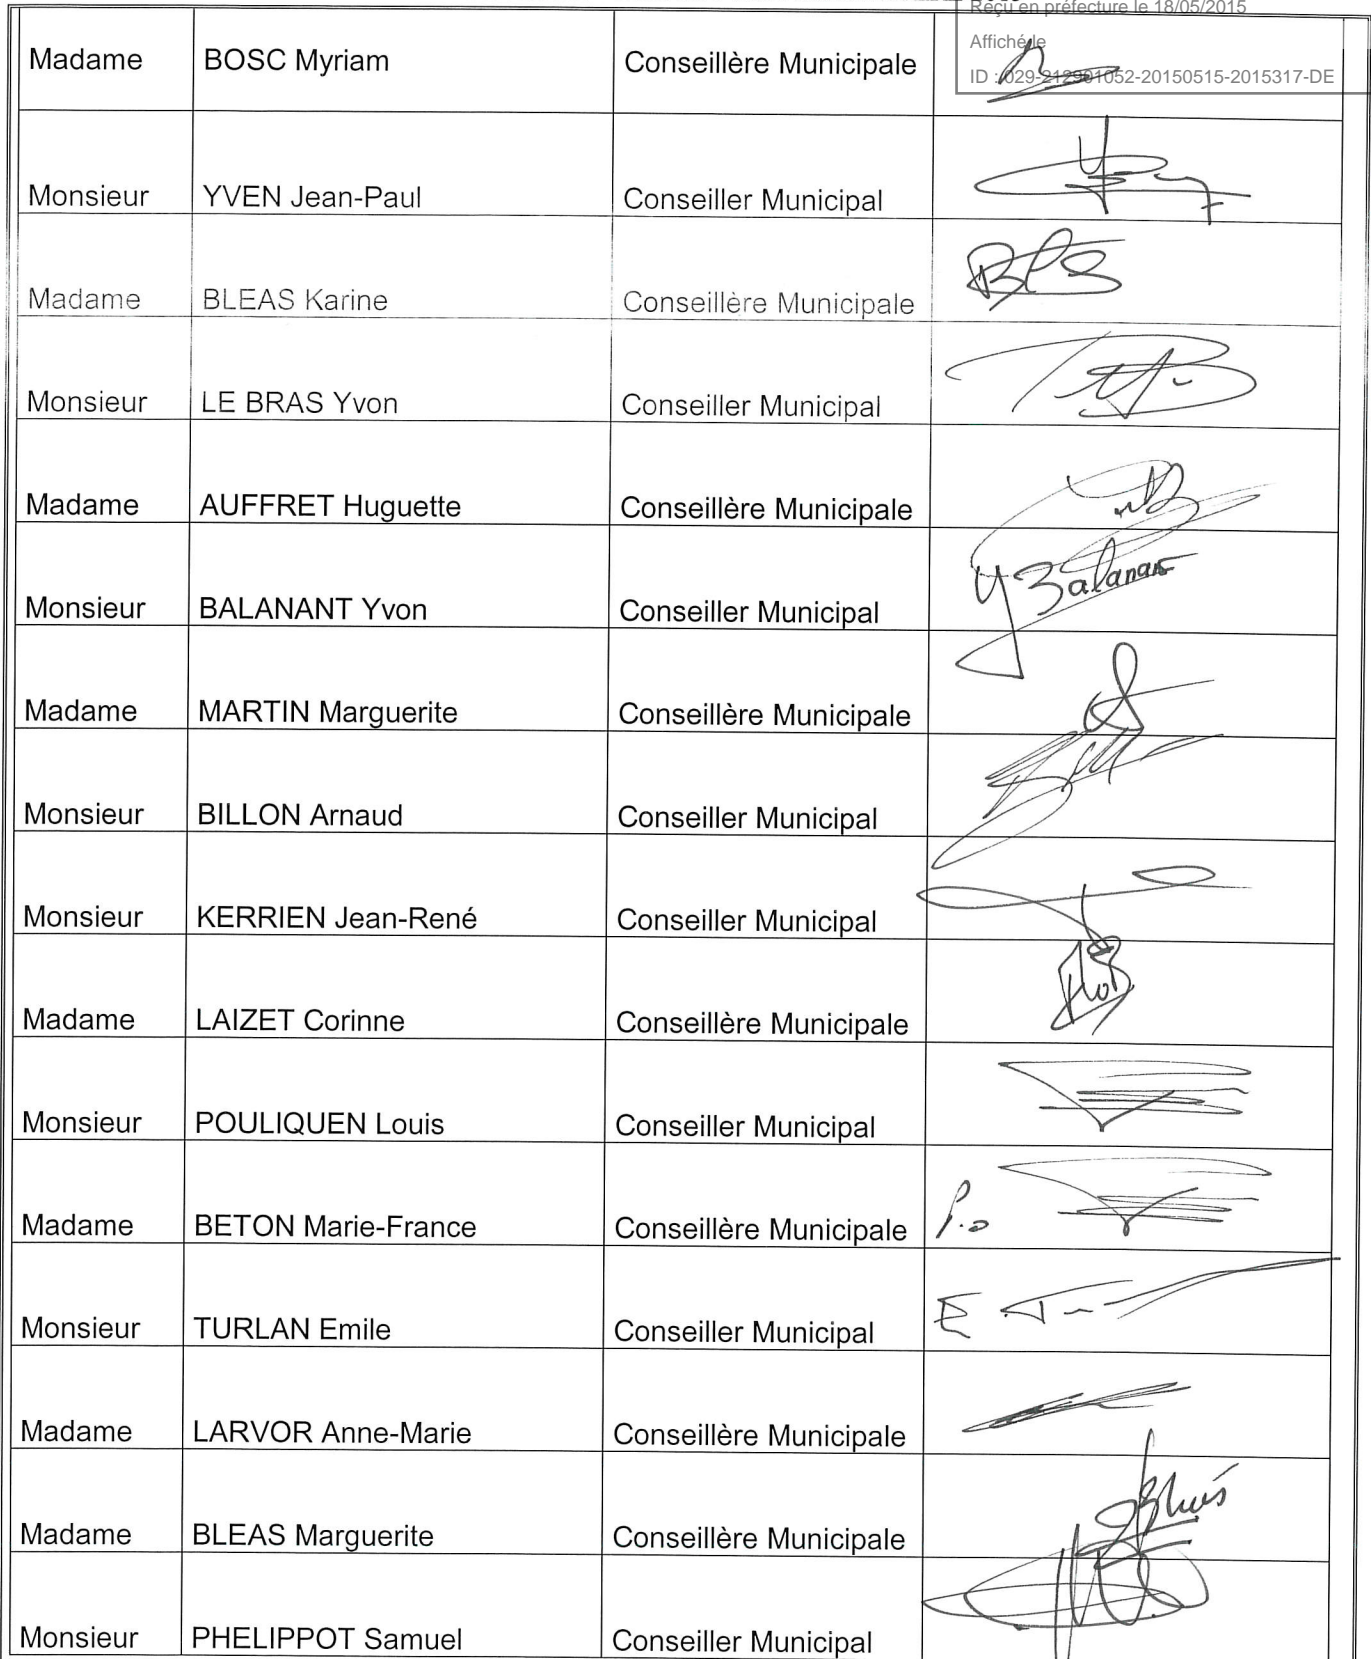 Reçu en préfecture le 18/05/2015
Affiché le
ID : 029-212901052-20150515-2015317-DE
Madame BOSC Myriam Conseillère Municipale
Monsieur YVEN Jean-Paul Conseiller Municipal
Madame BLEAS Karine Conseillère Municipale
Monsieur LE BRAS Yvon Conseiller Municipal
Madame AUFFRET Huguette Conseillère Municipale
Monsieur BALANANT Yvon Conseiller Municipal Y Balanant
Madame MARTIN Marguerite Conseillère Municipale
Monsieur BILLON Arnaud Conseiller Municipal
Monsieur KERRIEN Jean-René Conseiller Municipal
Madame LAIZET Corinne Conseillère Municipale
Monsieur POULIQUEN Louis Conseiller Municipal
Madame BETON Marie-France Conseillère Municipale P.o
Monsieur TURLAN Emile Conseiller Municipal
Madame LARVOR Anne-Marie Conseillère Municipale
Madame BLEAS Marguerite Conseillère Municipale
Monsieur PHELIPPOT Samuel Conseiller Municipal